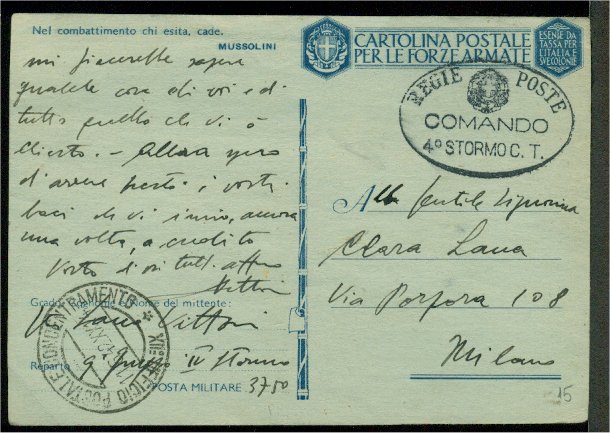 Nel combattimento chi esita, cade.
MUSSOLINI
CARTOLINA POSTALE
PER LE FORZE ARMATE
ESENTE DA
TASSA PER
L'ITALIA E
SVE COLONIE
REGIE POSTE
COMANDO
4º STORMO C. T.
mi piacerebbe sapere
qualche cosa di voi e di
tutto quello che vi è
d'avere presto i vostri
baci che vi invio, ancora
una volta, a
Vostro
Vittorio
Alla Gentile Signorina
Clara Lana
Via Porpora 108
Milano
Grado, Cognome e Nome del mittente:
Vittori
Reparto 9 Gruppo IV Stormo
POSTA MILITARE 3750
UFFICIO POSTALE CONCENTRAMENTO
15